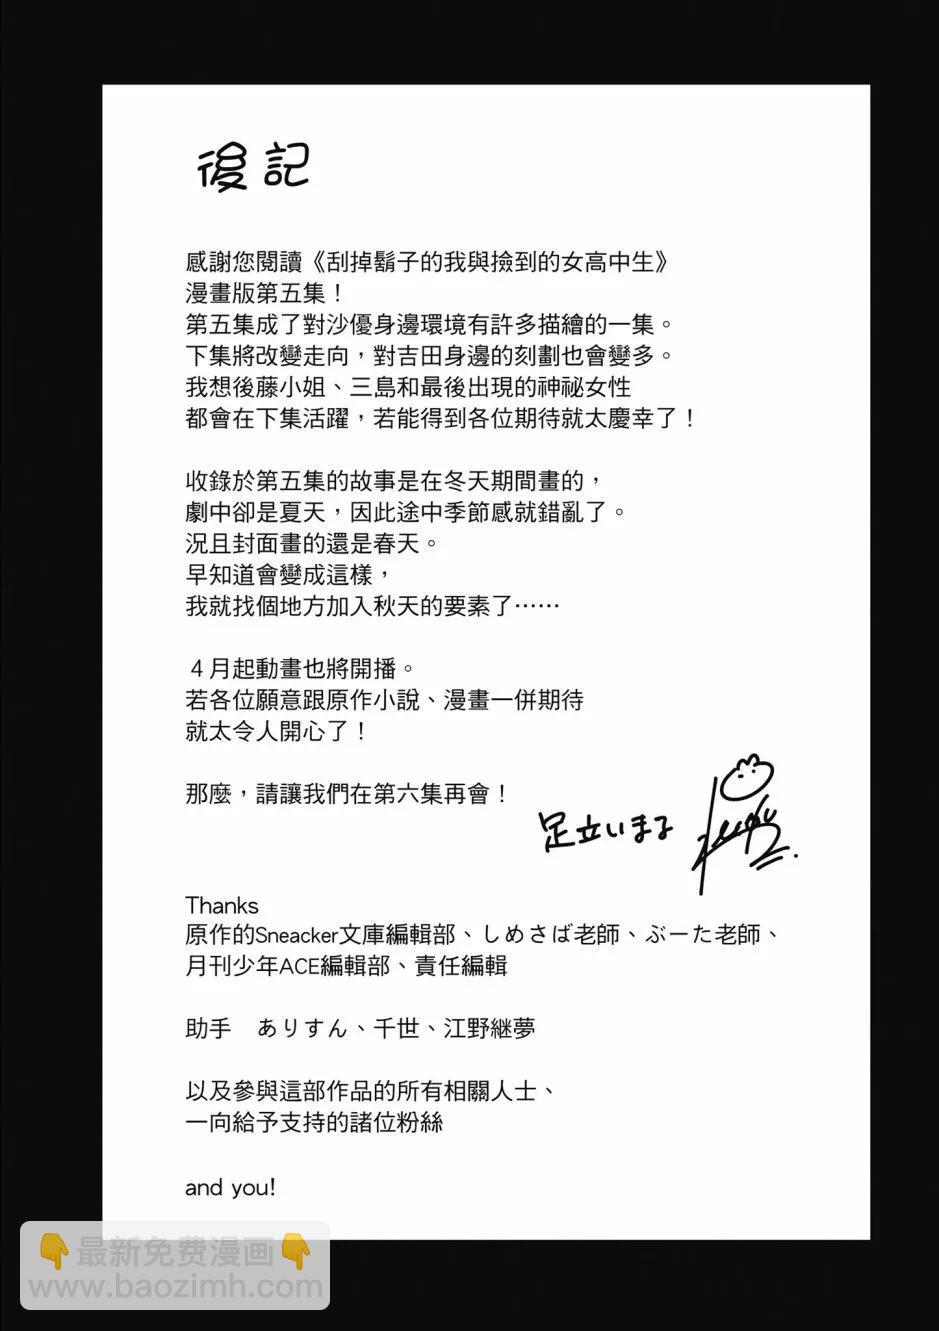 後記
感謝您閱讀《刮掉鬍子的我與撿到的女高中生》
漫畫版第五集！
第五集成了對沙優身邊環境有許多描繪的一集。
下集將改變走向，對吉田身邊的刻劃也會變多。
我想後藤小姐、三島和最後出現的神祕女性
都會在下集活躍，若能得到各位期待就太慶幸了！
收錄於第五集的故事是在冬天期間畫的，
劇中卻是夏天，因此途中季節感就錯亂了。
況且封面畫的還是春天。
早知道會變成這樣，
我就找個地方加入秋天的要素了……
４月起動畫也將開播。
若各位願意跟原作小說、漫畫一併期待
就太令人開心了！
那麼，請讓我們在第六集再會！
足立いまる
Thanks
原作的Sneacker文庫編輯部、しめさば老師、ぶーた老師、
月刊少年ACE編輯部、責任編輯
助手　ありすん、千世、江野継夢
以及參與這部作品的所有相關人士、
一向給予支持的諸位粉絲
and you!
👇最新免费漫画👇
www.baozimh.com